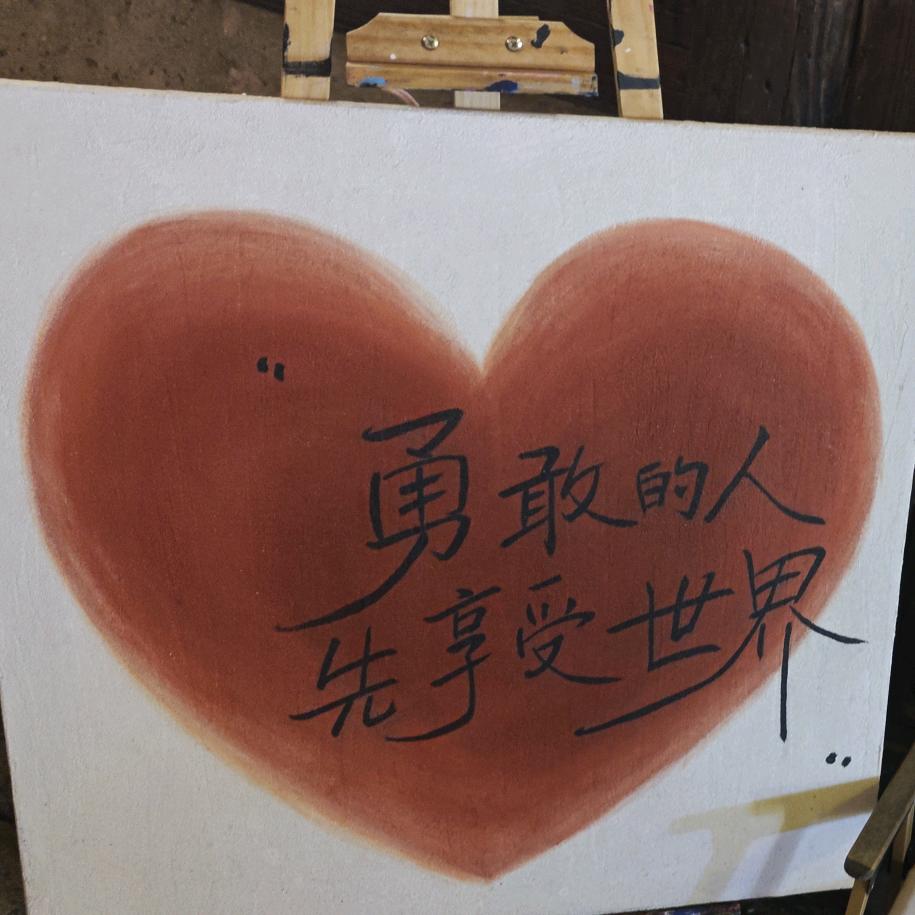 “勇敢的人
先享受世界”